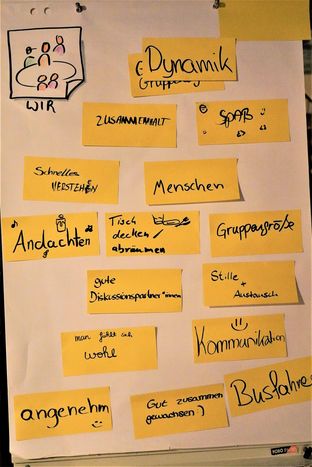 WIR
Dynamik
ZUSAMMENHALT
SPAß
Schnelles
VERSTEHEN
Menschen
Andachten
Tisch
decken/
abräumen
Gruppengröße
gute
Diskussionspartner*innen
Stille
+
Austausch
man fühlt sich
wohl
Kommunikation
angenehm
Gut zusammen
gewachsen :)
Busfahre